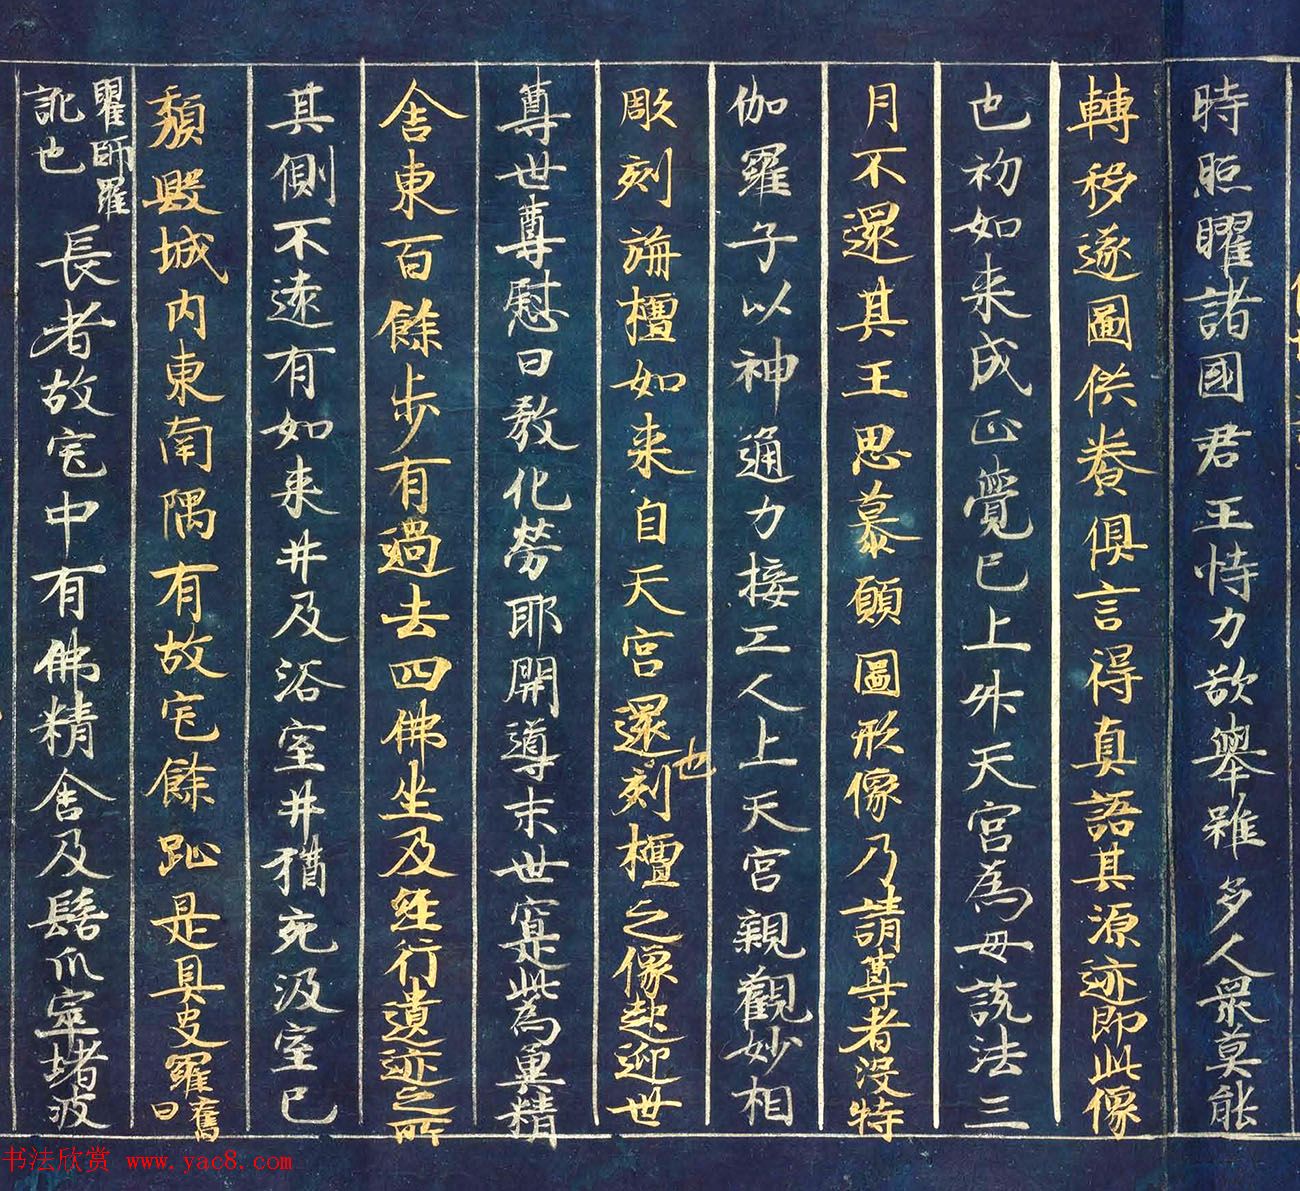 時照曜諸國君王恃力欲舉雖多人衆莫能
轉移遂圖供養俱言得真語其源迹即此像
也初如来成正覺已上升天宮為母說法三
月不還其王思慕願圖形像乃請尊者没特
伽羅子以神通力接工人上天宮親觀妙相
彫刻旃檀如来自天宮還也刻檀之像起迎世
尊世尊慰曰教化勞耶開導末世寔此為冀精
舍東百餘步有過去四佛坐及経行遺迹之所
其側不遠有如来井及浴室井猶充汲室已
頽毀城内東南隅有故宅餘趾是具史羅舊曰
瞿師羅訛也長者故宅中有佛精舍及髮爪窣堵波
书法欣赏 www.yac8.com